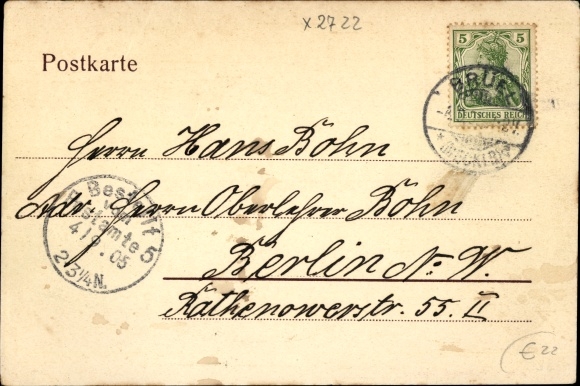 x 2722
Postkarte
5 5
DEUTSCHES REICH
BRÜEL
(MECKLB)
Herrn Hans Böhn
Adr. Herrn Oberlehrer Böhn
Berlin N. W.
Rathenowerstr. 55. II
Bestellt
vom
Postamte 5
4/9. 05
2 3¼N.
€22